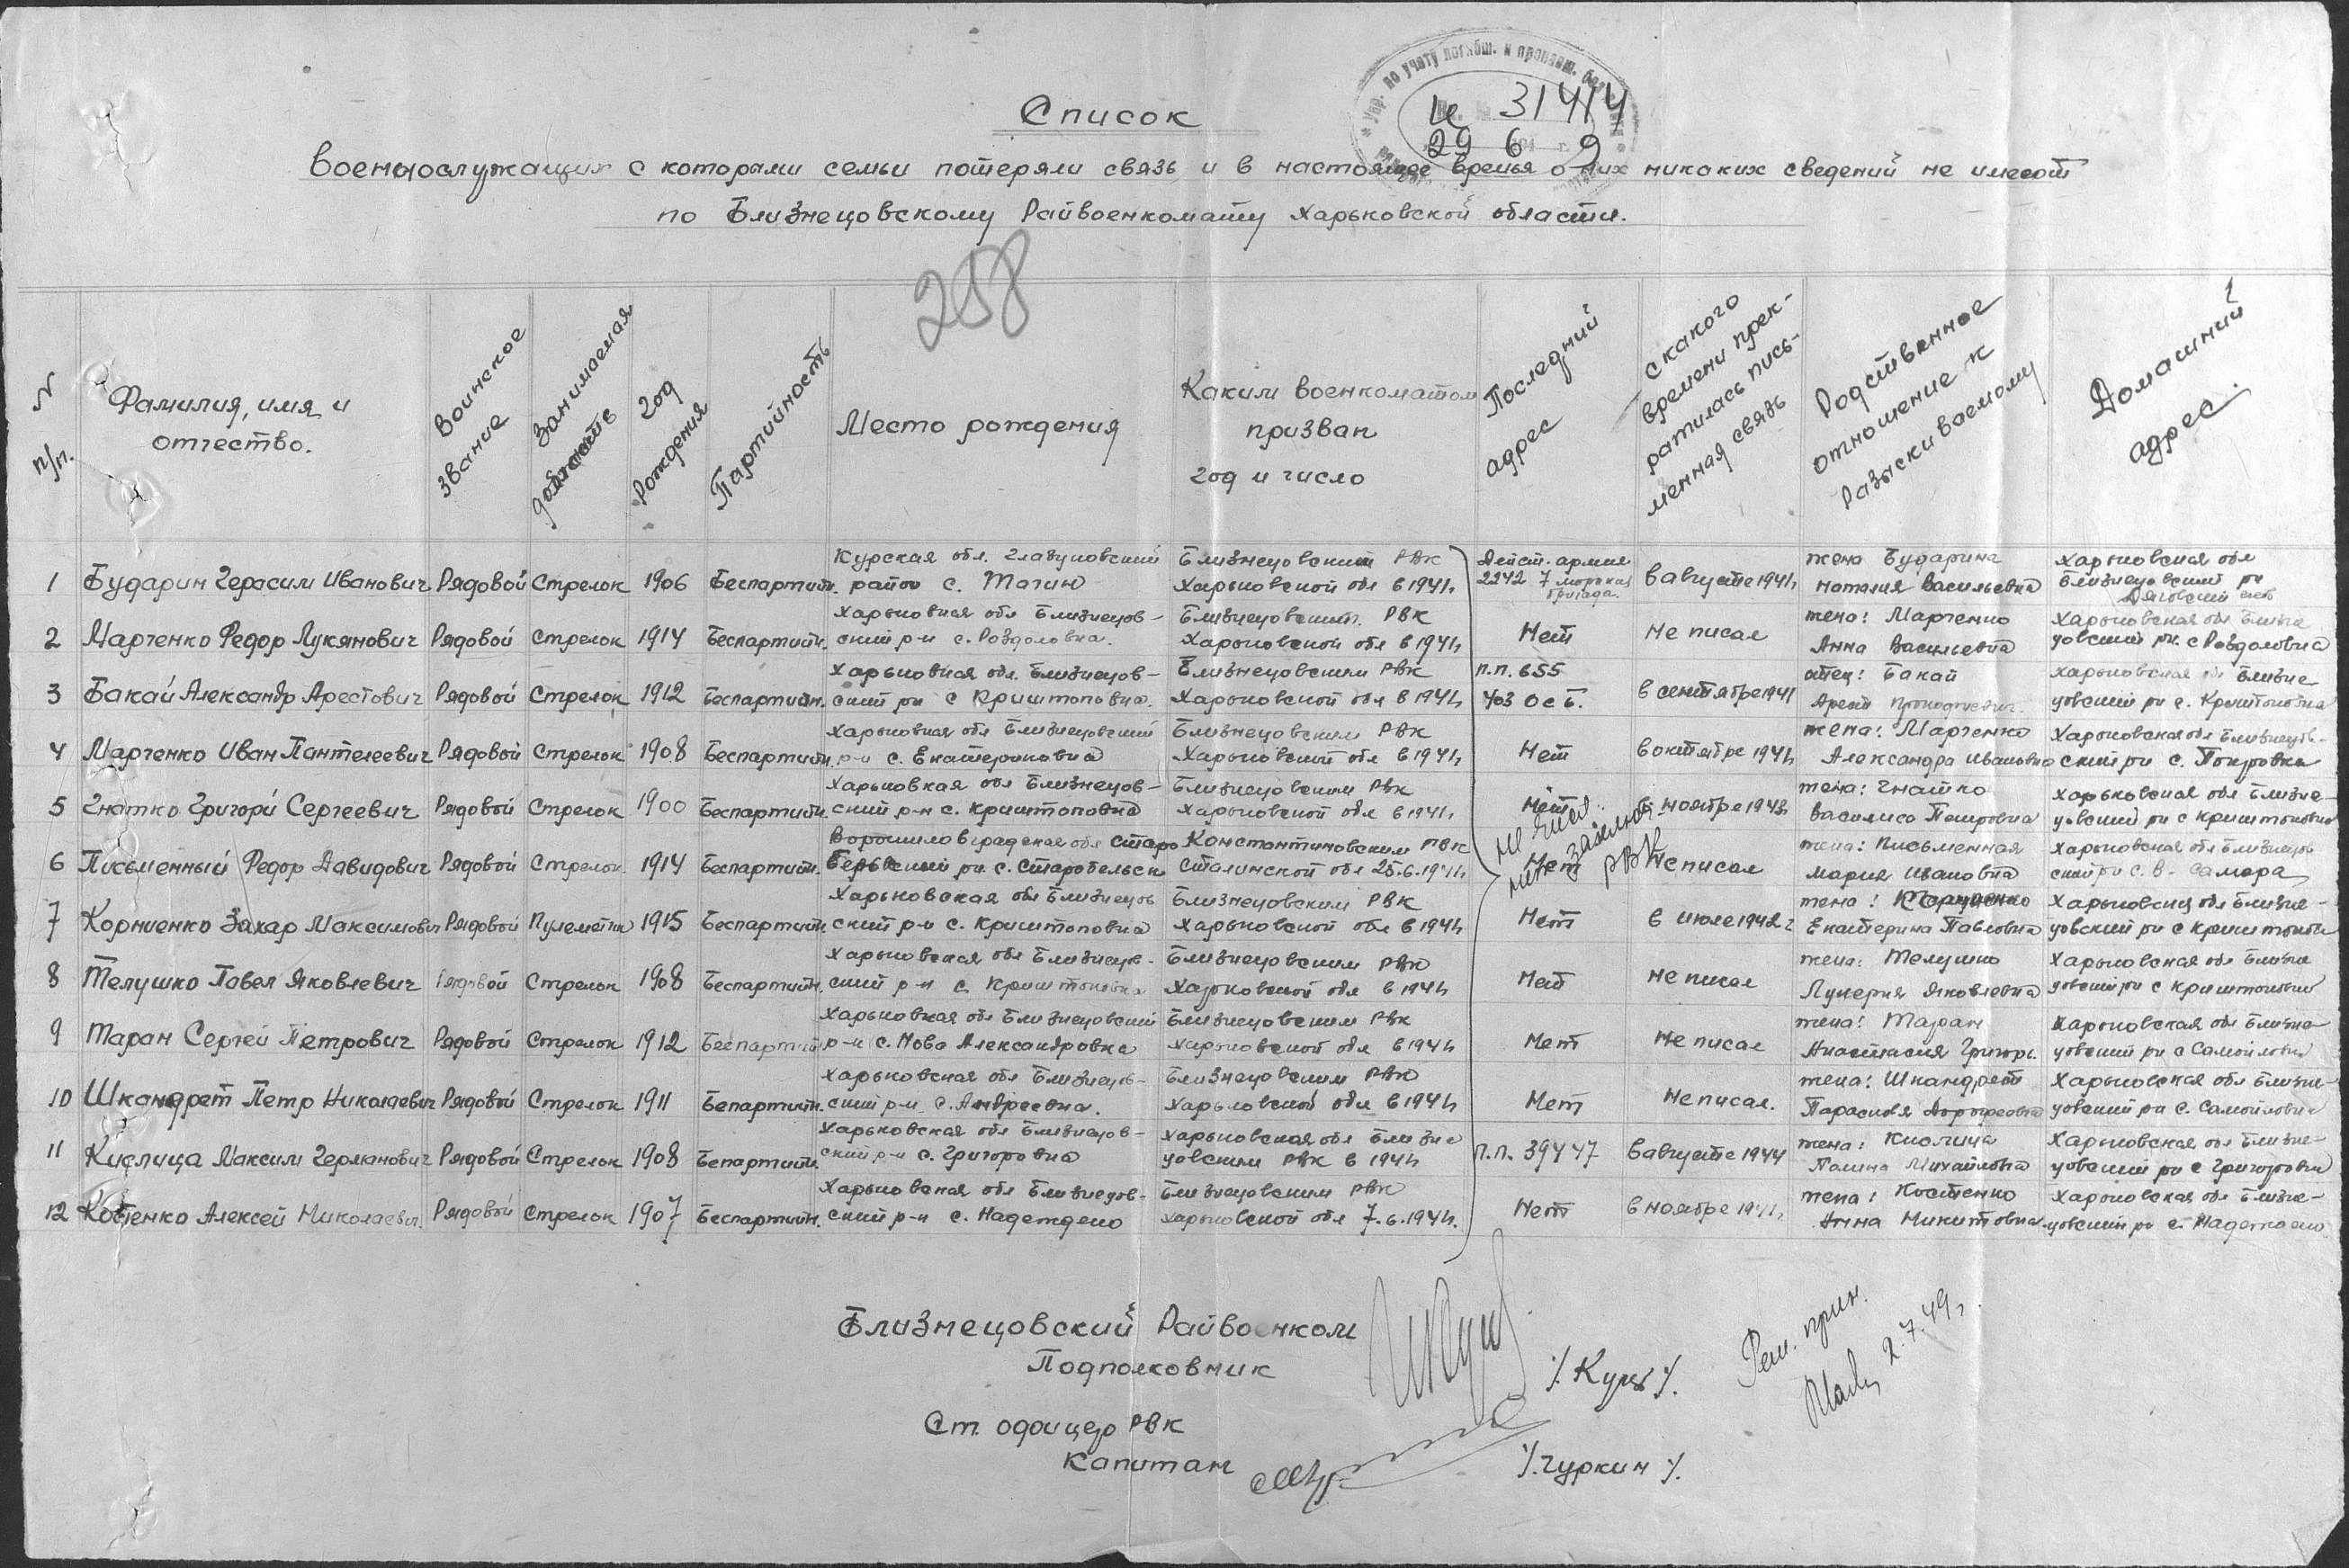 Упр. по учету погибш. и пропавш.
И 31414
29 6 9
Список
военнослужащих с которыми семьи потеряли связь и в настоящее время о них никаких сведений не имеют
по Близнецовскому Райвоенкомату Харьковской области.
258
N п/п.
Фамилия, имя и отчество.
Воинское звание
Занимаемая
Год рождения
Партийность
Место рождения
Каким военкоматом призван год и число
Последний адрес
с какого времени прекратилась письменная связь
Родственное отношение к разыскиваемому
Домашний адрес.
1 Бударин Герасим Иванович Рядовой Стрелок 1906 Беспартийн. Курская обл. Глазуновский район с. Тагино Близнецовским РВК Харьковской обл в 1941г Дейст. армия 2242 7 морская бригада. в августе 1941г жена Бударина Наталия Васильевна Харьковская обл Близнецовский рн
2 Марченко Федор Лукянович Рядовой стрелок 1914 Беспартийн. Харьковская обл Близнецовский р-н с. Роздоловка. Близнецовским РВК Харьковской обл в 1941г Нет Не писал жена: Марченко Анна Васильевна Харьковская обл Близнецовский рн. с Роздоловка
3 Бакай Александр Арестович Рядовой Стрелок 1912 Беспартийн. Харьковская обл. Близнецовский рн с Криштоповка. Близнецовским РВК Харьковской обл в 1941г п.п. 655 403 ОСБ. в сентябре 1941 отец: Бакай Харьковская Близнецовский рн с. Криштоповка
4 Марченко Иван Пантелеевич Рядовой Стрелок 1908 Беспартийн. Харьковская обл Близнецовский р-н с. Екатериновка Близнецовским РВК Харьковской обл в 1941г Нет в октябре 1941г жена: Марченко Александра Ивановна Харьковская обл Близнецовский рн с. Покровка
5 Гнатко Григорй Сергеевич Рядовой Стрелок 1900 Беспартийн. Харьковкая обл Близнецовский р-н с. Криштоповка Близнецовским РВК Харьковской обл в 1941г. Нет в ноябре 1943г жена: Гнатко Василиса Петровна Харьковская обл Близнецовский рн с Криштоповка
6 Письменный Федор Давидович Рядовой Стрелок 1914 Беспартийн. Ворошиловградская обл Старобельский рн. с. Старобельск Константиновским РВК Сталинской обл 25.6.1941г. Нет Не писал жена: Письменная Мария Ивановна Харьковская обл Близнецовский рн с. В. Самара
7 Корниенко Захар Максимович Рядовой Пулеметчик 1915 Беспартийн. Харьковская обл Близнецовский р-н с. Криштоповка Близнецовским РВК Харьковской обл в 1941г Нет в июле 1942г жена: Екатерина Павловна Харьковская обл Близнецовский рн с Криштоповка
8 Телушко Павел Яковлевич Рядовой Стрелок 1908 Беспартийн. Харьковская обл Близнецовский р-н с Криштоповка Близнецовским РВК Харьковской обл в 1941г Нет Не писал жена: Телушко Лукерия Яковлевна Харьковская обл Близнецовский рн с Криштоповка
9 Таран Сергей Петрович Рядовой Стрелок 1912 Беспартийн Харьковкая обл Близнецовский р-н с. Ново Александровка Близнецовским РВК Харьковской обл в 1941г Нет Не писал жена: Таран Анастасия Григорь. Харьковская обл Близнецовский рн с Самойловка
10 Шкандрет Петр Николаевич Рядовой Стрелок 1911 Бепартийн. Харьковская обл Близнецовский р-н с. Андреевка. Близнецовским РВК Харьковской обл в 1941г Нет Не писал. жена: Шкандрет Парасковя Харьковская обл Близнецовский рн с. Самойловка
11 Кислица Максим Германович Рядовой Стрелок 1908 Бепартийн. Харьковская обл Близнецовский р-н с. Григоровка Харьковская обл Близнецовским РВК в 1941г п.п. 39447 в августе 1944 жена: Кислица Харьковская обл Близнецовский рн с Григоровка
12 Костенко Алексей Николаевич Рядовой Стрелок 1907 Беспартийн. Харьковская обл Близнецовский р-н с. Надеждено Близнецовским РВК Харьковской обл 7.6.1941г. Нет в ноябре 1941г. жена: Костенко Анна Микитовна Харьковская обл Близнецовский рн с. Надеждено
РВК
Близнецовский Райвоенком
Подполковник
/. Куць /.
Ст. офицер РВК
Капитан
/. Чуркин /.
2.7.49г.